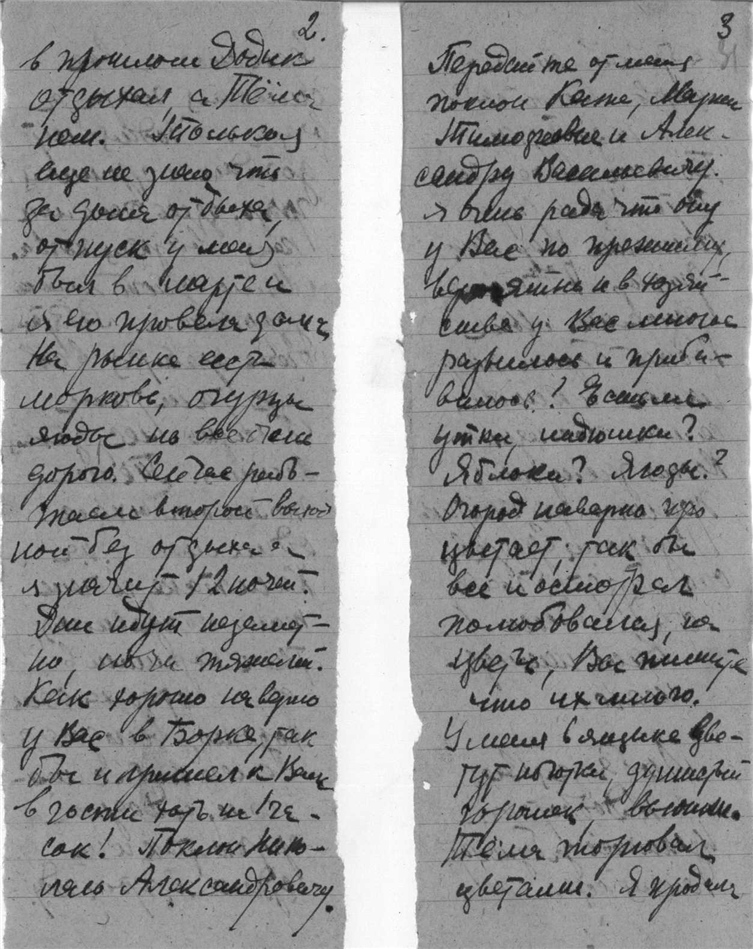 2.
в прошлом Додик
отдыхал, а Тёма
нет. Только я
еще не знаю что
за дома отдыха,
отпуск у меня
был в марте и
я его провела дома
На рынке есть
морковь, огурцы
ягоды но все очень
дорого. Сейчас рабо-
таем второй выход
ной без отдыха и
я значит 12 ночей.
Дни идут незамет-
но, ночи тяжелей.
Как хорошо наверно
у Вас в Борке, так
бы и пришел к Вам
в гости хоть на 1 ча-
сок! Поклон Нико-
лаю Александровичу.
3
Передайте от меня
поклон Кате, Марии
Тимофеевне и Алек-
сандру Васильевичу.
Я очень рада что они
у Вас по прежнему,
вероятно и в хозяй-
стве у Вас многое
развилось и приба-
вилось? Есть ли
утки, индюшки?
Яблоки? Ягоды?
Огород наверно про
цветает, так бы
все и осмотрел
полюбовался, на
цветы, Вы пишите
что их много.
У меня в ящике цве-
тут ноготки, душистый
горошек, вьюнки.
Тёма торговал
цветами. Я продала